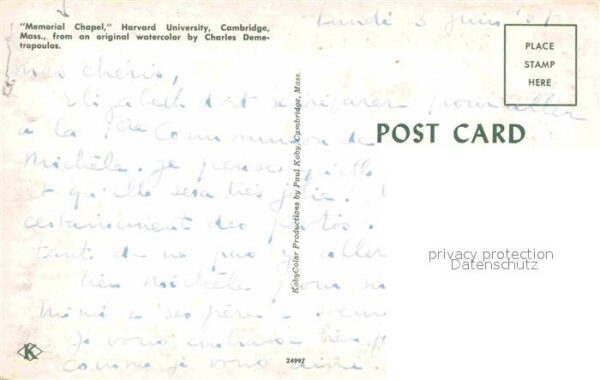 "Memorial Chapel," Harvard University, Cambridge,
Mass., from an original watercolor by Charles Deme-
tropoulos.
Lundi 5 juin
PLACE
STAMP
HERE
POST CARD
Mes chéris,
Elizabeth doit se préparer pour aller
a la 1ère Communion de
Michèle. Je pense qu'elle
et qu'elle sera très jolie.
certainement des photos.
tant de ne pas y aller
bien Michèle pour
Mimi a ses frères
Je vous embrasse bien
comme je vous aime.
KobyColor Productions by Paul Koby, Cambridge, Mass.
privacy protection
Datenschutz
K
24997